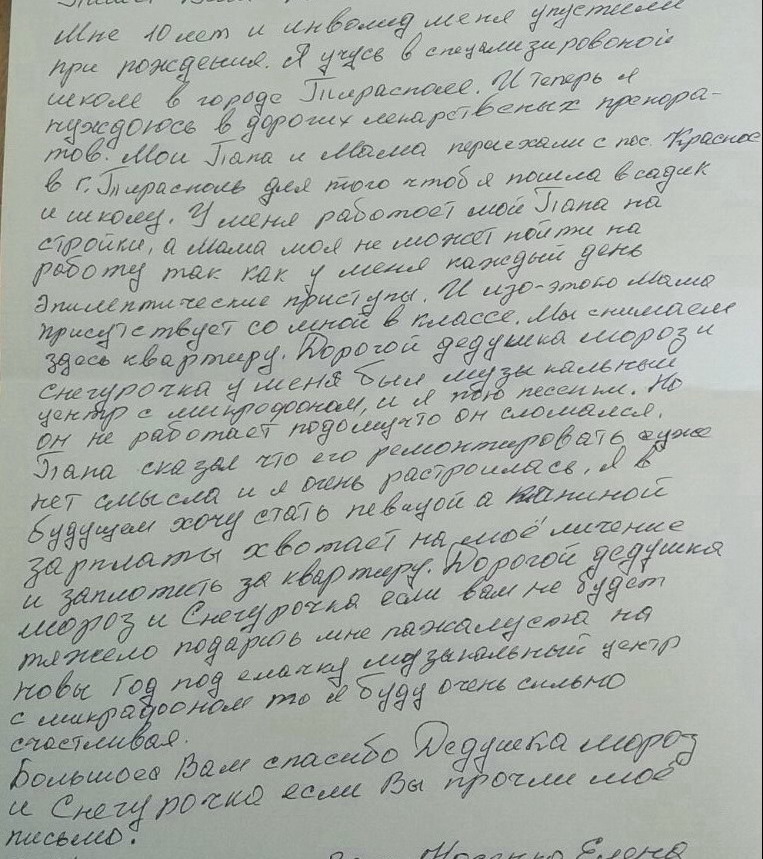 Мне 10 лет и инволид меня упустили
при рождения. Я учусь в специализировоной
школе в городе Тирасполе. И теперь я
нуждоюсь в дорогих лекарственых препора-
тов. Мои Папа и Мама переехали с пос. Красное
в г. Тирасполь для того чтоб я пошла в садик
и школу. У меня работоет мой Папа на
стройки, а Мама моя не может пойти на
роботу так как у меня каждый день
эпилептические приступы. И изо-этого Мама
присутствует со мной в классе. Мы снимаем
здесь квартиру. Дорогой дедушка мороз и
снегурочка у меня был музыкальный
центр с микродооном, и я пою песенки. Но
он не работает подомучто он сломался.
Папа сказал что его ремонтировать уже
нет смысла и я очень растроилась. Я в
будущем хочу стать певицой а папиной
зарплаты хвотает на моё личение
и заплотить за квартиру. Дорогой дедушка
мороз и Снегурочка если вам не будет
тяжело подарить мне пажалуста на
новы Год под елачку музыкальный центр
с микрадооном то я буду очень сильно
счастливая.
Большоеа Вам спасибо Дедушка мороз
и Снегурочка если Вы прочли моё
письмо.
Елена